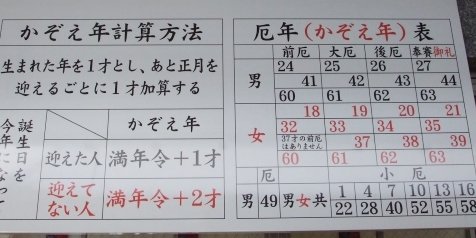 かぞえ年計算方法
生まれた年を1才とし、あと正月を
迎えるごとに1才加算する
かぞえ年
今年
誕生日を
迎えた人 満年令+1才
迎えて
ない人 満年令+2才
厄年(かぞえ年)表
前厄 大厄 後厄 奉賽御礼
男 24 25 26 27
41 42 43 44
60 61 62 63
女 18 19 20 21
32 33 34 35
37才の前厄
はありません 37 38 39
60 61 62 63
厄 小厄
男 49 男女共 1 4 7 10 13 16
22 28 40 52 55 58